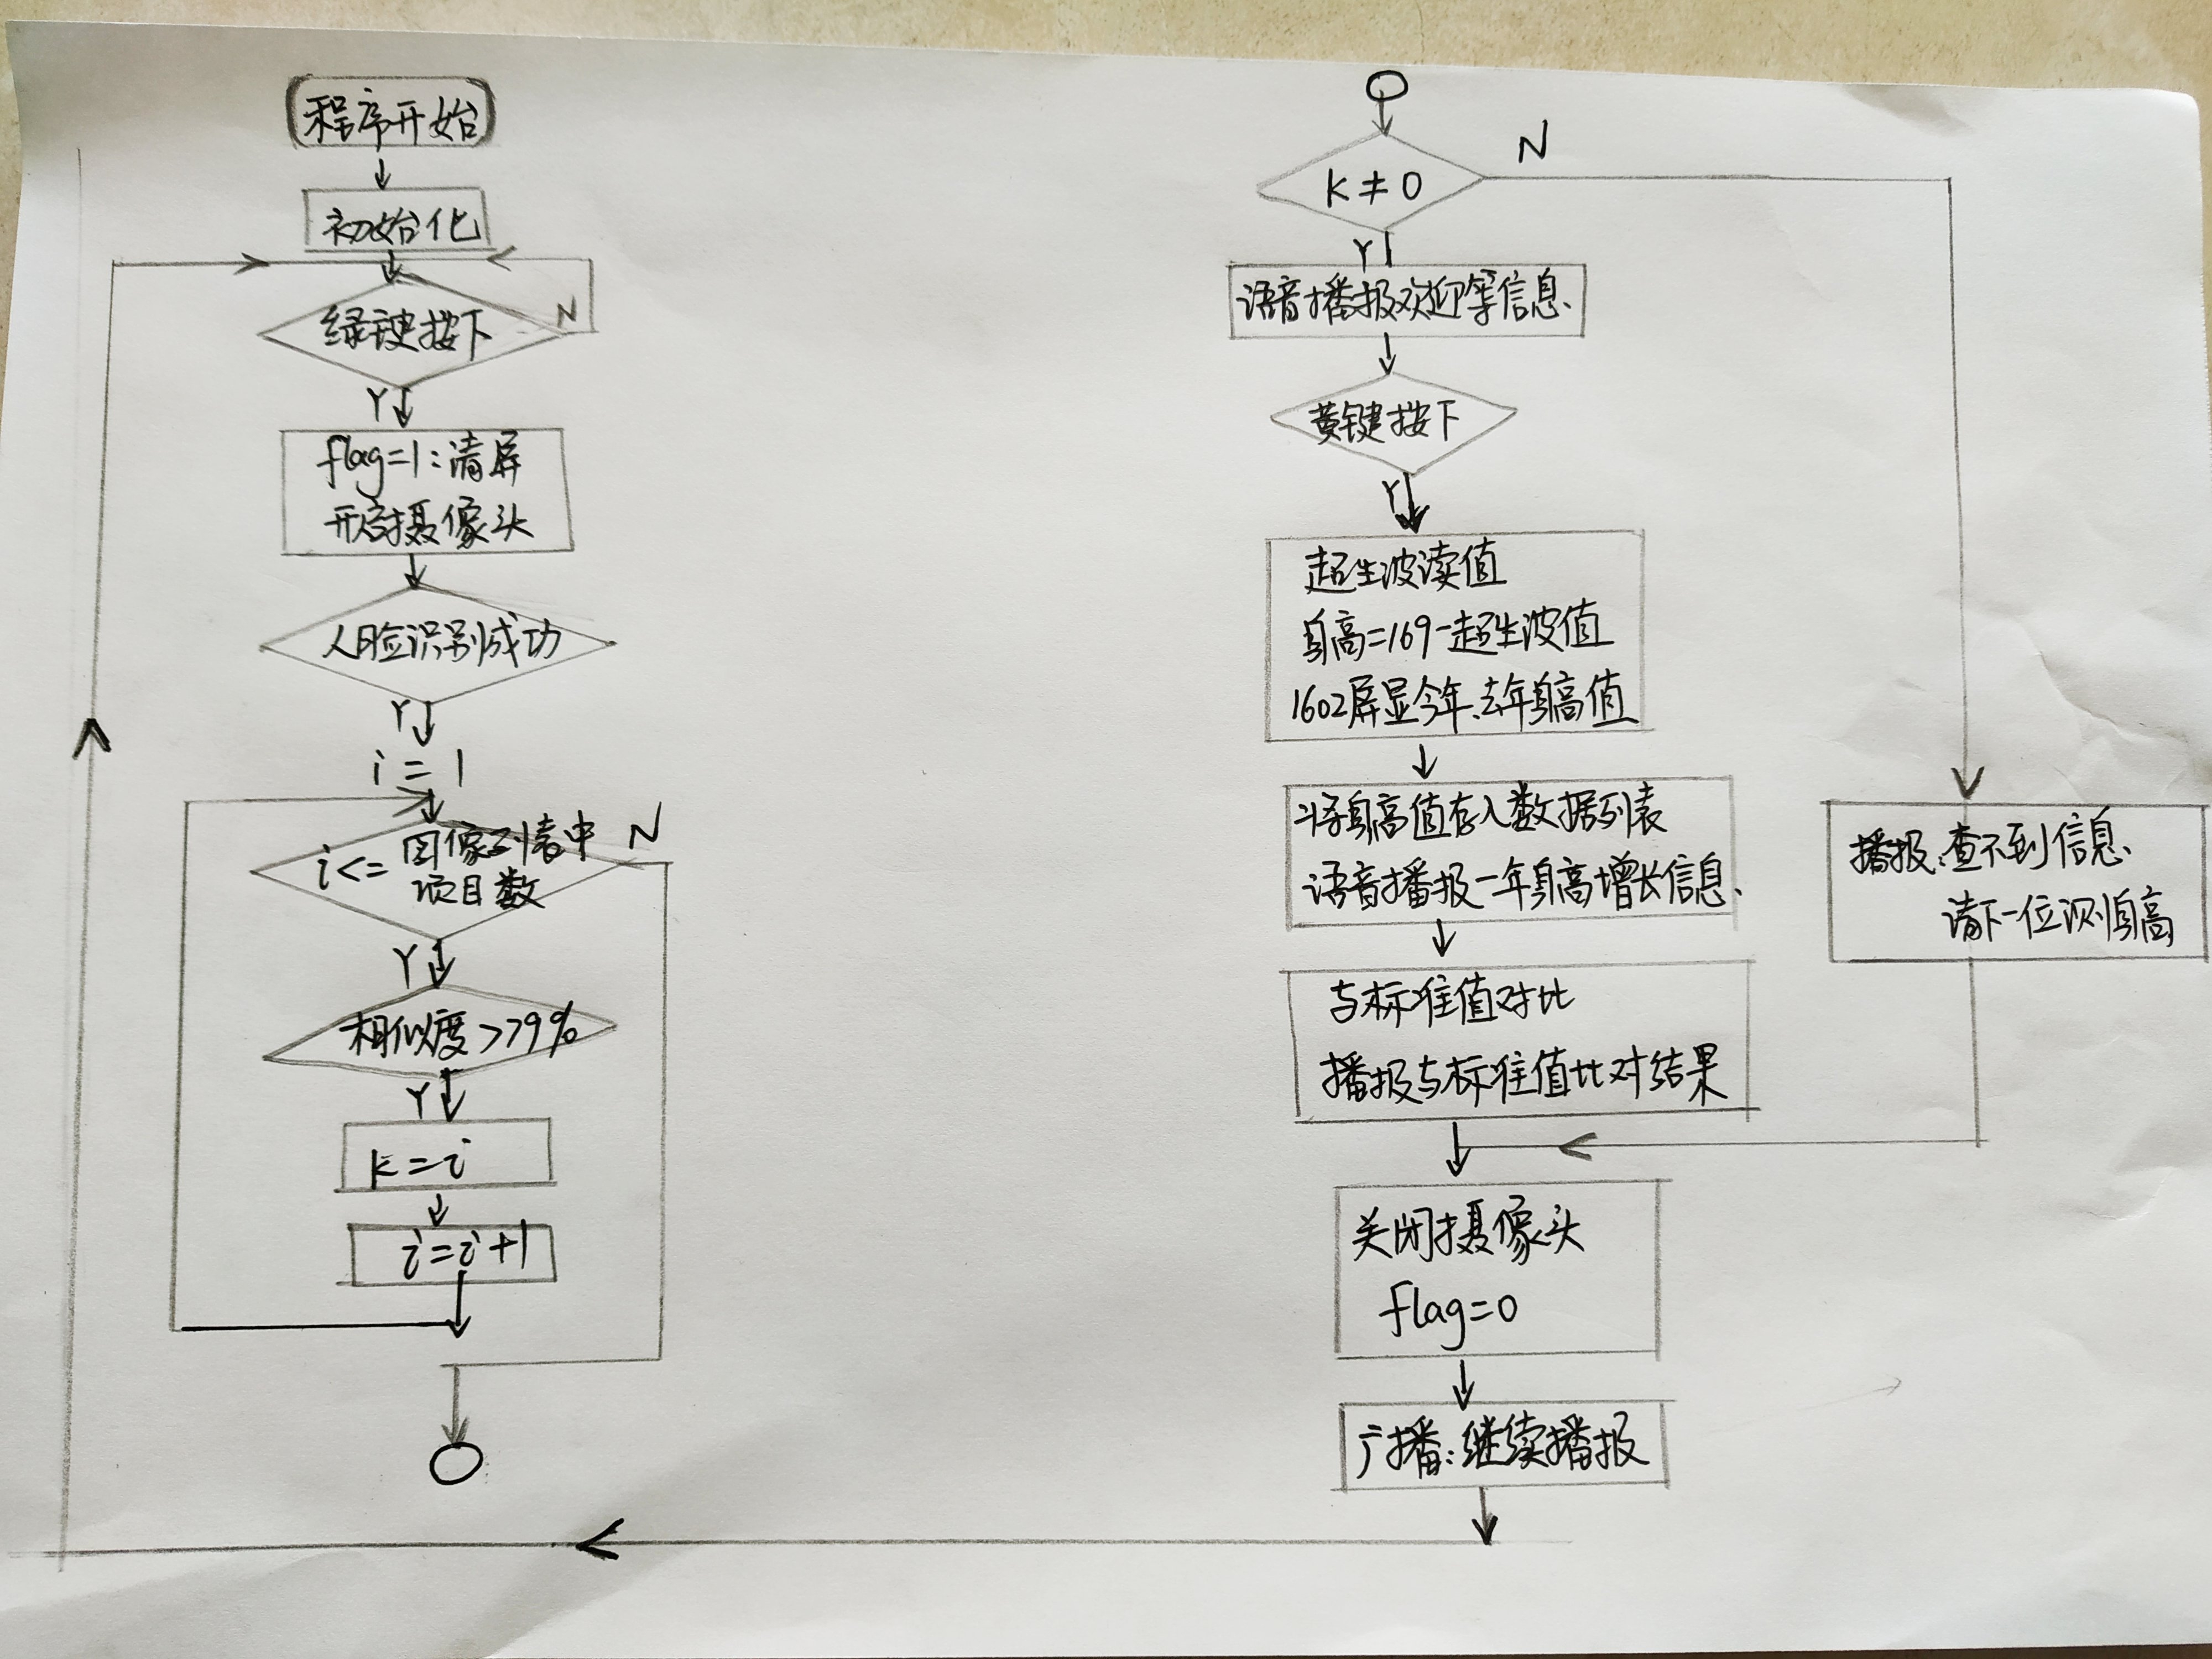 程序开始
初始化
绿键按下
N
Y
flag=1:清屏
开启摄像头
人脸识别成功
Y
i=1
i<=图像列表中
项目数
N
Y
相似度>79%
Y
k=i
i=i+1
k≠0
N
Y
语音播报欢迎等信息、
黄键按下
Y
超生波读值
身高=169-超生波值
1602屏显今年、去年身高值
将身高值存入数据列表
语音播报一年身高增长信息、
与标准值对比
播报与标准值比对结果
播报:查不到信息、
请下一位测身高
关闭摄像头
flag=0
广播:继续播报